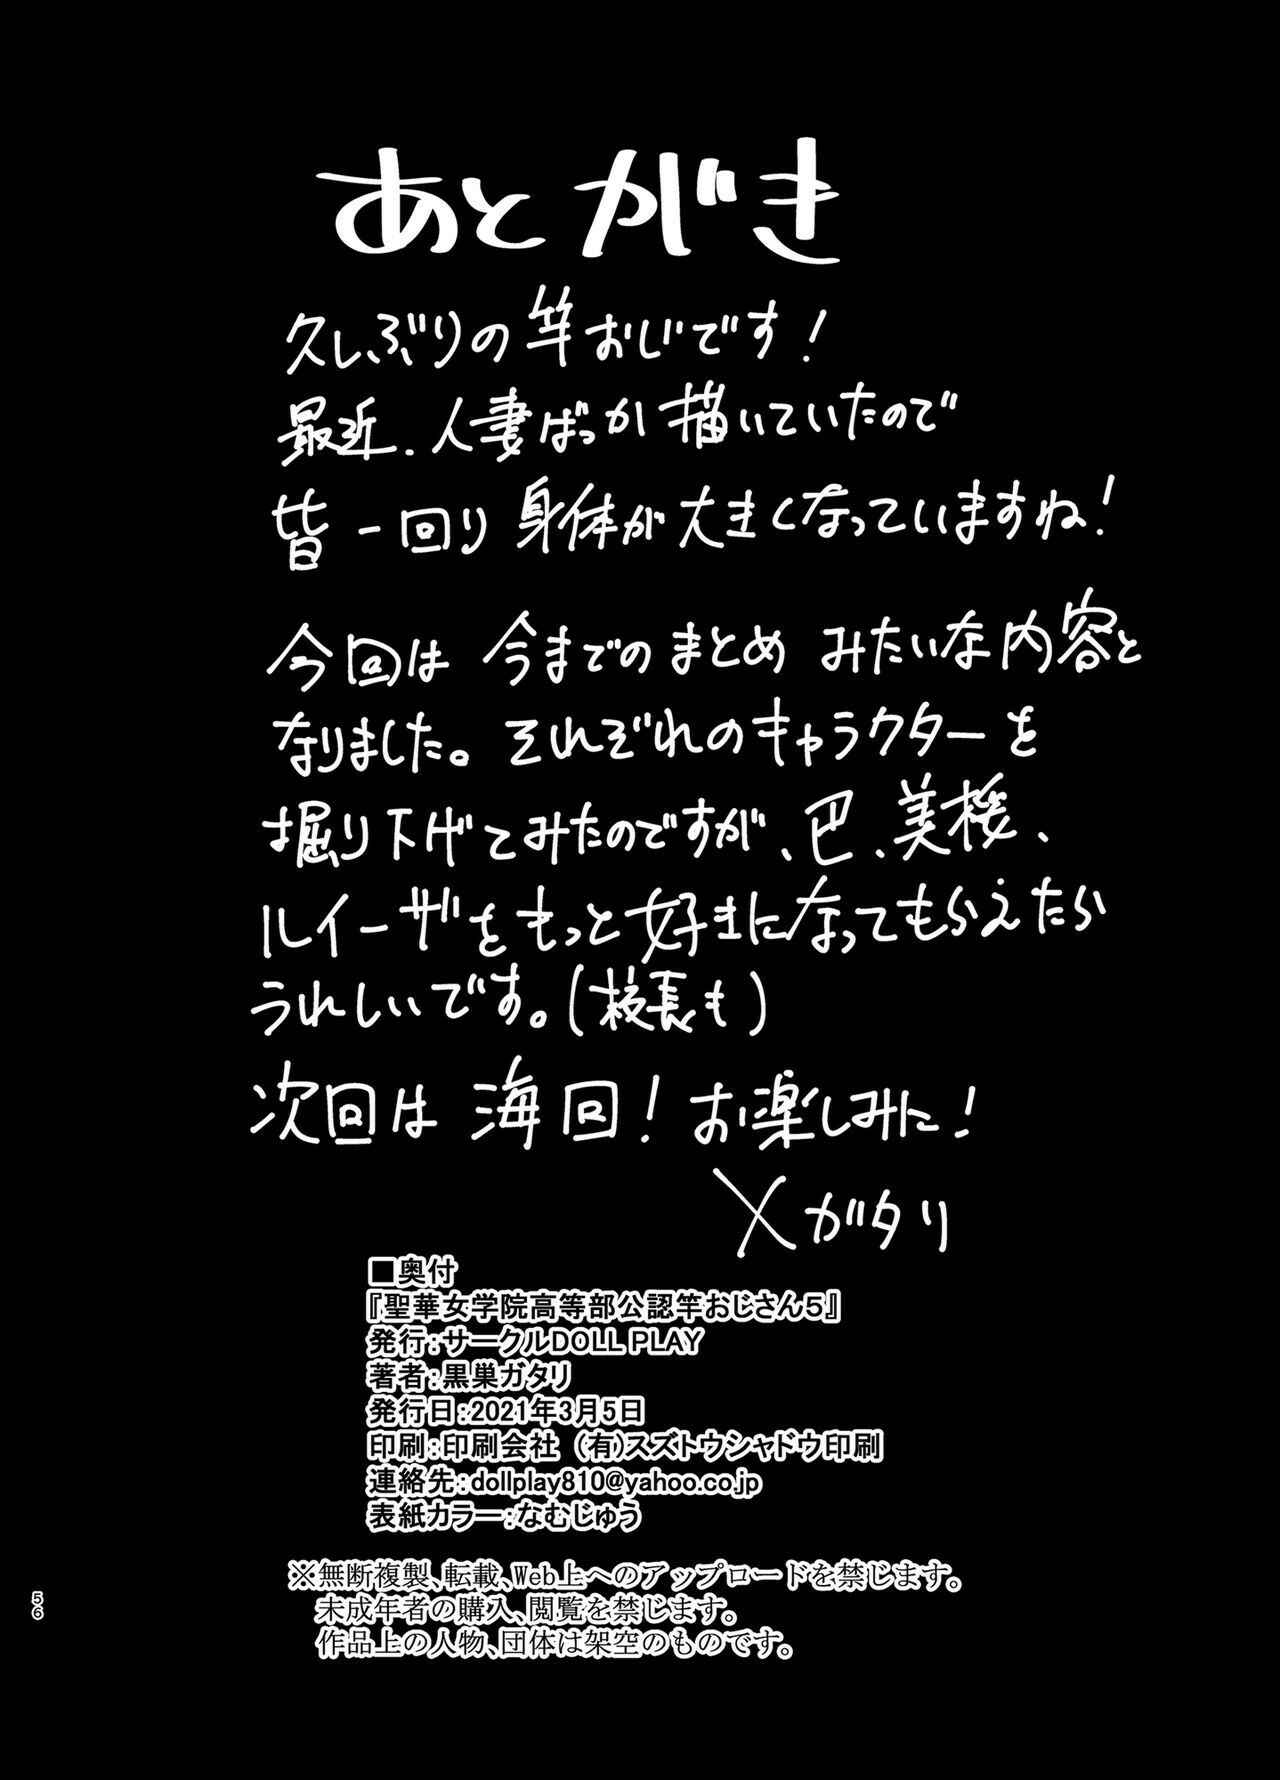 あとがき
久しぶりの竿おじです！
最近、人妻ばっか描いていたので
皆一回り身体が大きくなっていますね！
今回は今までのまとめみたいな内容と
なりました。それぞれのキャラクターを
掘り下げてみたのですが、巴、美桜、
ルイーザをもっと好きになってもらえたら
うれしいです。(校長も)
次回は海回！お楽しみに！
メガタリ
■奥付
『聖華女学院高等部公認竿おじさん5』
発行：サークルDOLL PLAY
著者：黒巣ガタリ
発行日：2021年3月5日
印刷：印刷会社 (有)スズトウシャドウ印刷
連絡先：dollplay810@yahoo.co.jp
表紙カラー：なむじゅう
※無断複製、転載、Web上へのアップロードを禁じます。
未成年者の購入、閲覧を禁じます。
作品上の人物、団体は架空のものです。
56